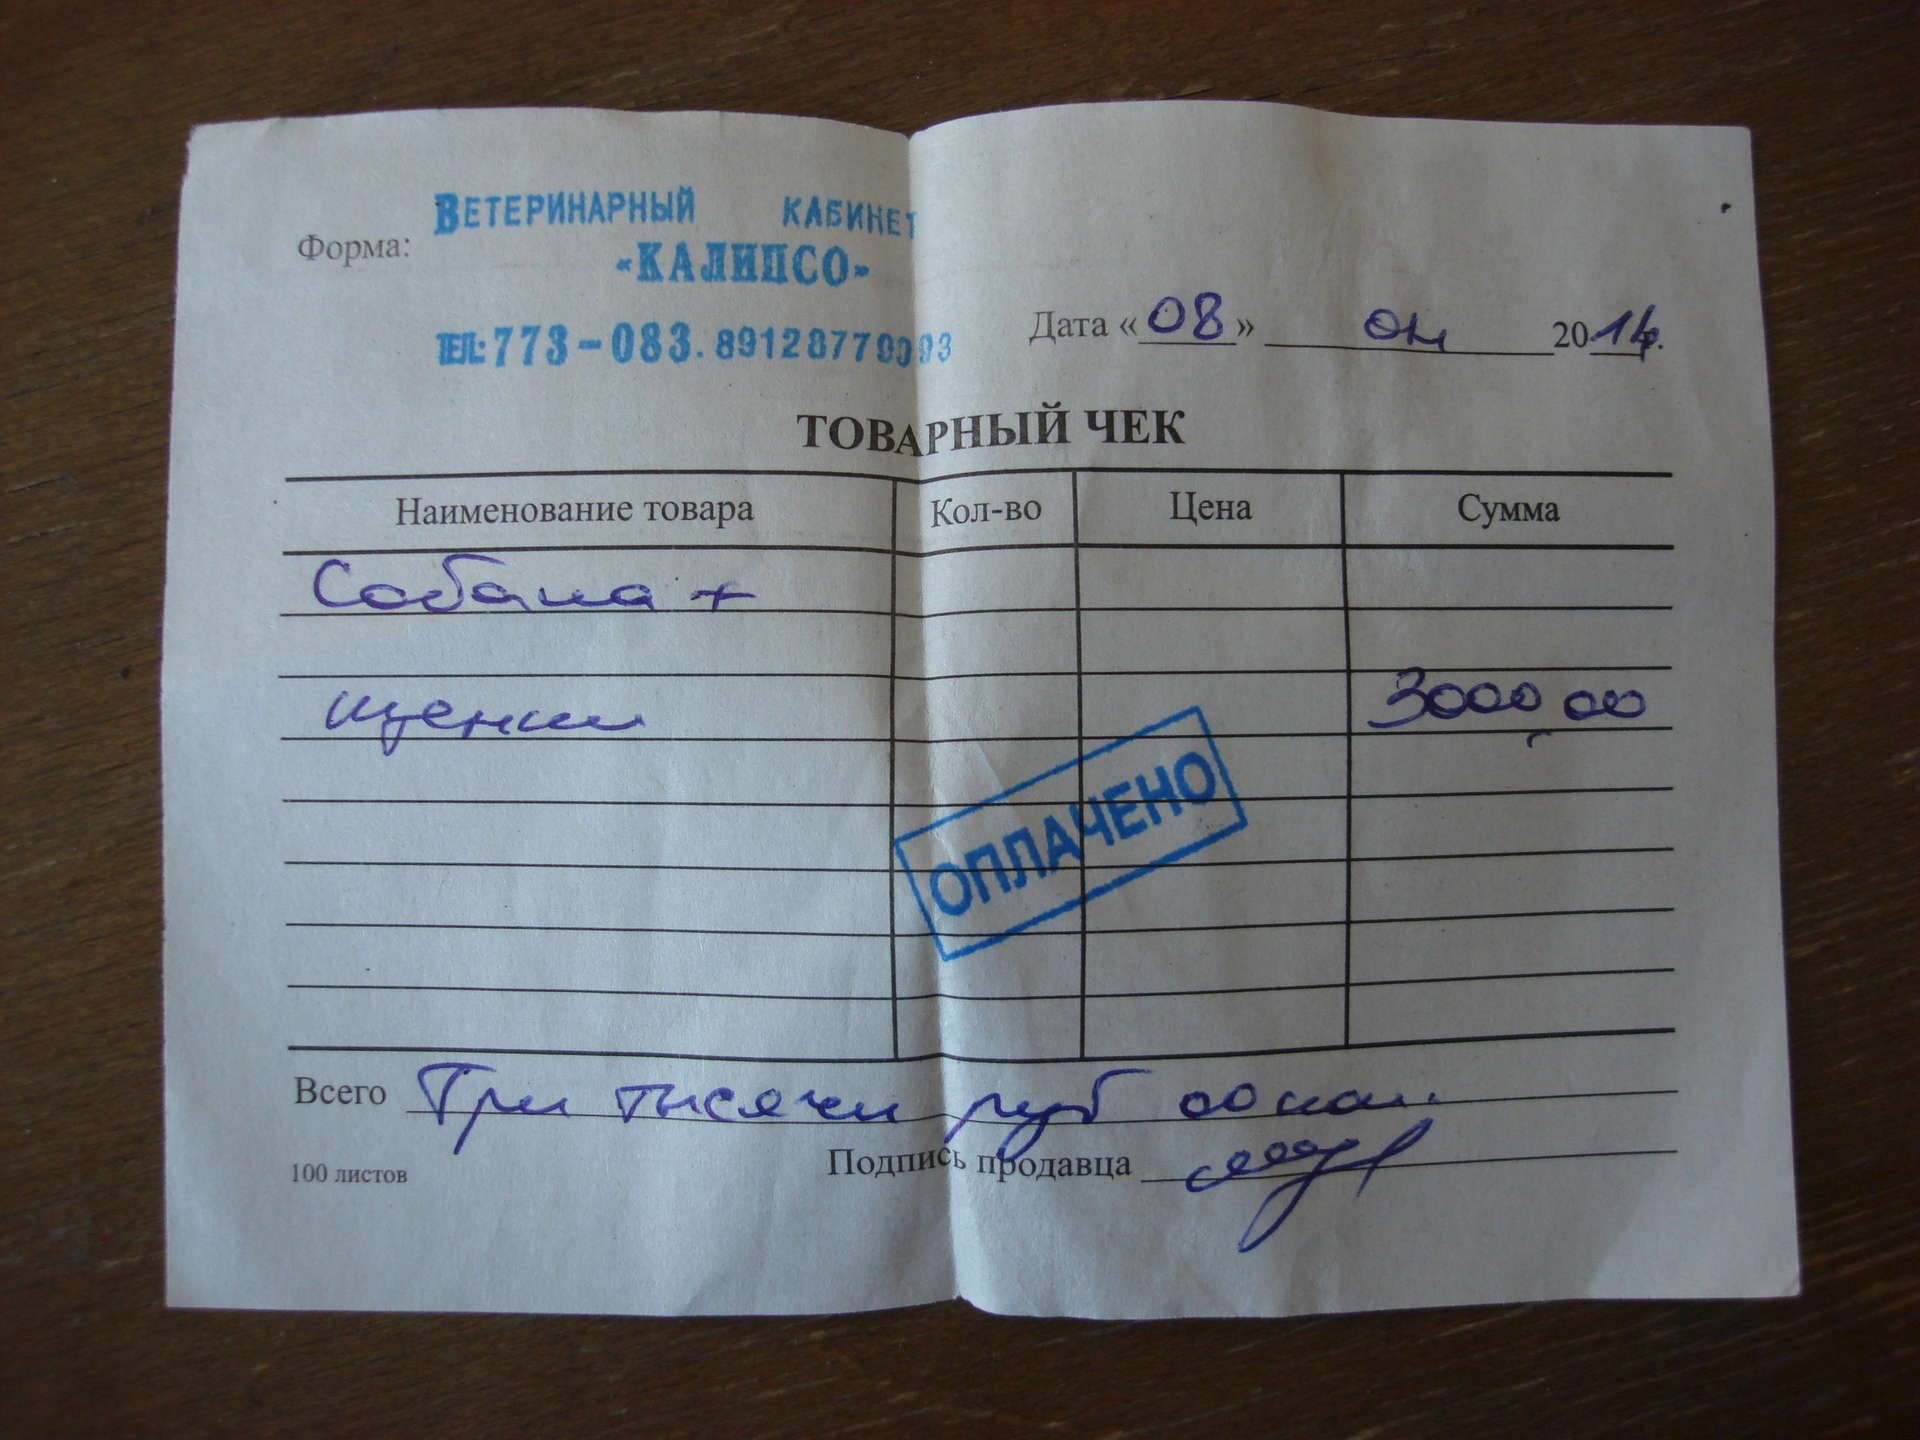 Ветеринарный кабинет
Форма:
«КАЛИПСО»
Дата «08» 04 2014г.
ТЕЛ: 773-083. 89128779093
ТОВАРНЫЙ ЧЕК
Наименование товара Кол-во Цена Сумма
Собака +
щенки 3000,00
ОПЛАЧЕНО
Всего Три тысячи руб 00 коп.
100 листов Подпись продавца